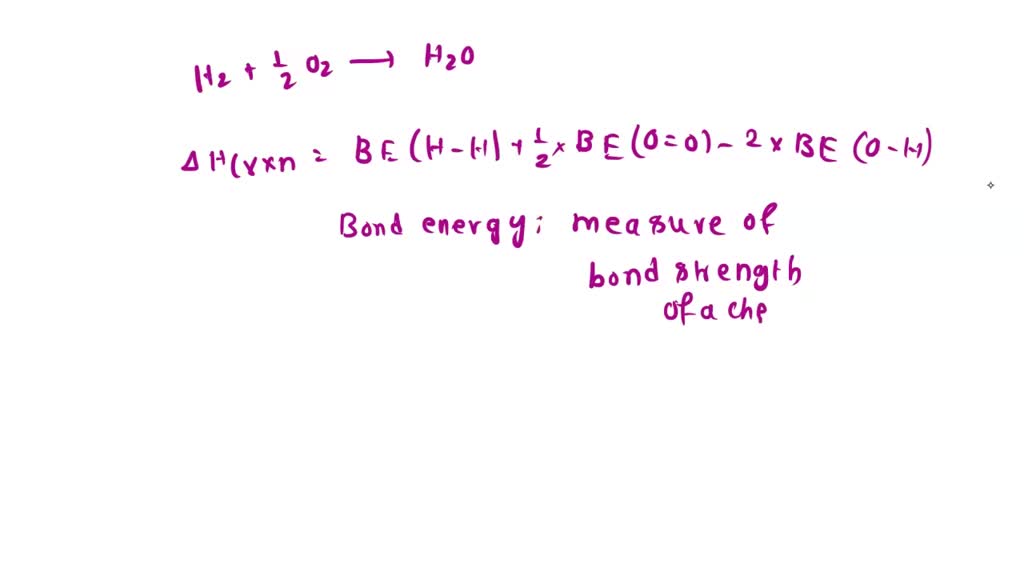 H2 + 1/2 O2 → H2O
ΔH(rxn = BE(H-H) + 1/2 × BE(O=O) - 2 × BE(O-H)
Bond energy: measure of
bond strength
of a che